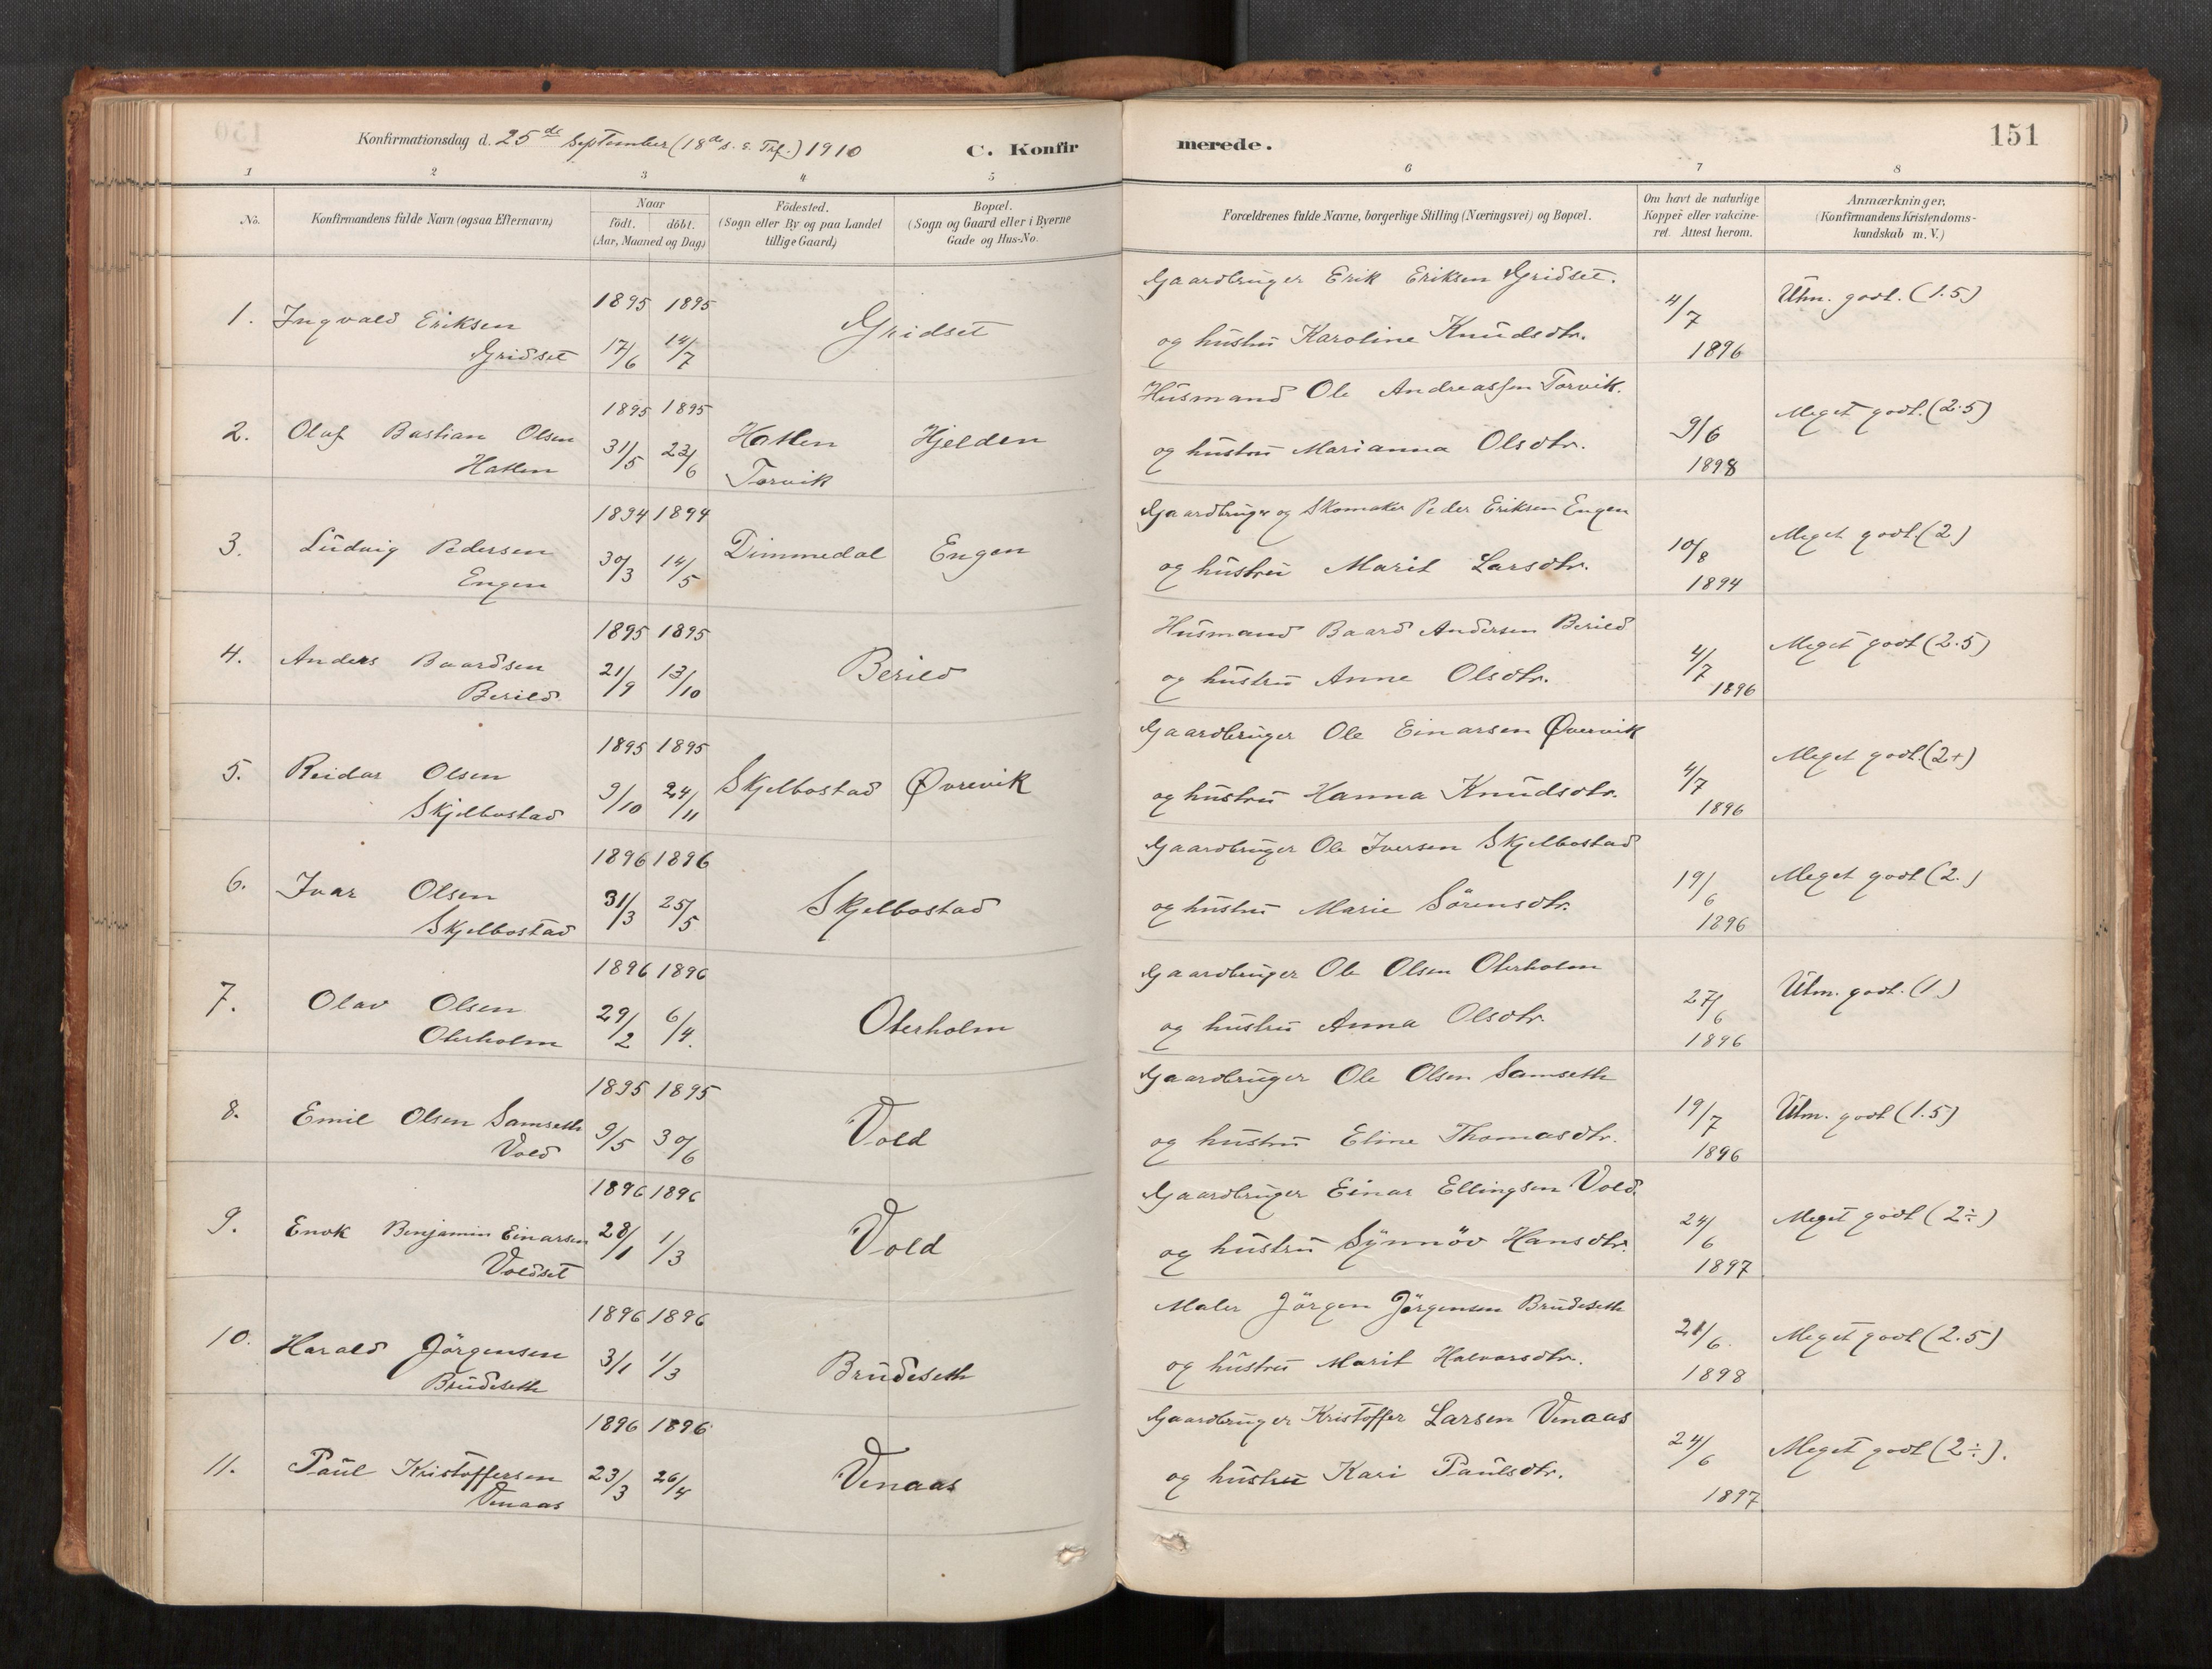 Konfirmationsdag d. 25de September (18de s. e. Tref.) 1910
C. Konfirmerede.
151
1 2 3 4 5 6 7 8
No.
Konfirmandens fulde Navn (ogsaa Efternavn)
Naar
födt. döbt.
(Aar, Maaned og Dag)
Födested.
(Sogn eller By og paa Landet
tillige Gaard)
Bopæl.
(Sogn og Gaard eller i Byerne
Gade og Hus-No.
Forældrenes fulde Navne, borgerlige Stilling (Næringsvei) og Bopæl.
Om havt de naturlige
Kopper eller vakcine-
ret. Attest herom.
Anmærkninger,
(Konfirmandens Kristendoms-
kundskab m. V.)
1. Ingvald Eriksen
Gridset
1895 1895
17/6 14/7
Gridset
Gaardbruger Erik Eriksen Gridset.
og hustru Karoline Knudsdtr.
4/7
1896
Utm. godt. (1.5)
2. Olaf Bastian Olsen
Hatlen
1895 1895
31/5 23/6
Hatlen
Torvik
Hjelden
Husmand Ole Andreassen Torvik.
og hustru Marianna Olsdtr.
9/6
1898
Meget godt. (2.5)
3. Ludvig Pedersen
Engen
1894 1894
30/3 14/5
Dimmedal
Engen
Gaardbruger og Skomaker Peder Eriksen Engen
og hustru Marit Larsdtr.
10/8
1894
Meget godt. (2)
4. Anders Baardsen
Berild
1895 1895
21/9 13/10
Berild
Husmand Baard Andersen Berild
og hustru Anne Olsdtr.
4/7
1896
Meget godt (2.5)
5. Reidar Olsen
Skjelbostad
1895 1895
9/10 24/11
Skjelbostad
Øvrevik
Gaardbruger Ole Einarsen Øvervik
og hustru Hanna Knudsdtr.
4/7
1896
Meget godt. (2+)
6. Ivar Olsen
Skjelbostad
1896 1896
31/3 25/5
Skjelbostad
Gaardbruger Ole Iversen Skjelbostad
og hustru Marie Sörensdtr.
19/6
1896
Meget godt (2.)
7. Olav Olsen
Oterholm
1896 1896
29/2 6/4.
Oterholm
Gaardbruger Ole Olsen Oterholm
og hustru Anna Olsdtr.
27/6
1896
Utm. godt. (1.)
8. Emil Olsen Samseth
Vold
1895 1895
9/5 30/6
Vold
Gaardbruger Ole Olsen Samseth
og hustru Eline Thomasdtr.
19/7
1896
Utm. godt (1.5)
9. Enok Benjamin Einarsen
Voldset
1896 1896
28/1 1/3
Vold
Gaardbruger Einar Ellingsen Vold.
og hustru Synnöv Hansdtr.
24/6
1897
Meget godt (2÷)
10. Harald Jörgensen
Brudeseth
1896 1896
3/1 1/3
Brudeseth
Maler Jörgen Jörgensen Brudeseth
og hustru Marit Halvorsdtr.
21/6.
1898
Meget godt (2.5)
11. Paul Kristoffersen
Venaas
1896 1896
23/3 26/4
Venaas
Gaardbruger Kristoffer Larsen Venaas
og hustru Kari Paulsdtr.
24/6
1897
Meget godt (2÷).